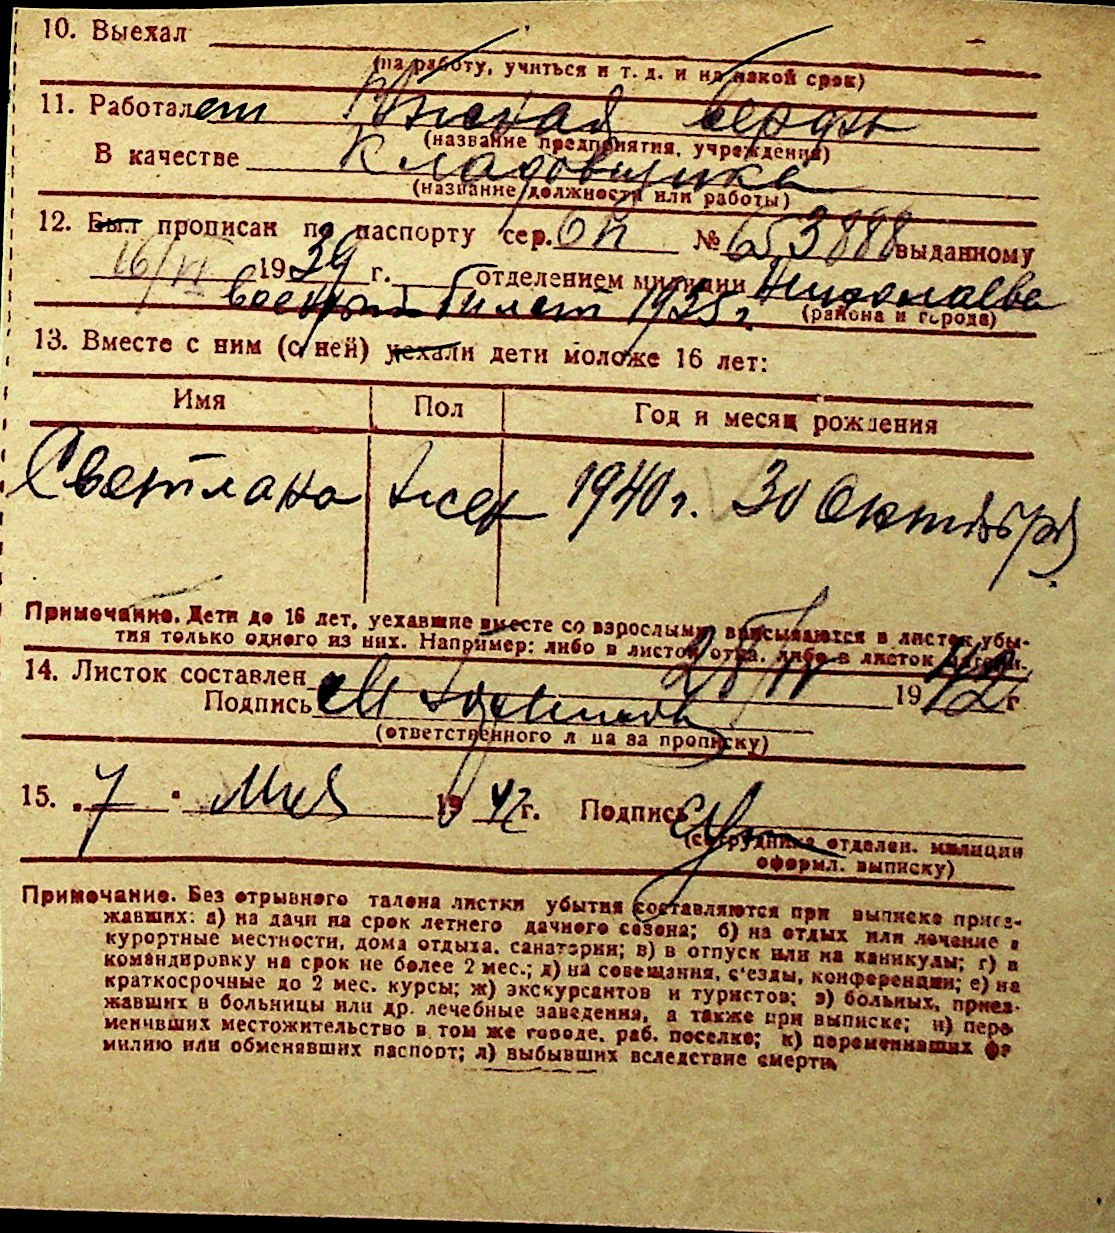 10. Выехал
(на работу, учиться и т. д. и на какой срок)
11. Работает Южная верфь
(название предприятия, учреждения)
В качестве Кладовщика
(название должности или работы)
12. Был прописан по паспорту сер. № 653888 выданному
16/VI 1939 г. отделением милиции Николаева
военный билет 1935 г. (района и города)
13. Вместе с ним (с ней) уехали дети моложе 16 лет:
Имя Пол Год и месяц рождения
Светлана жен 1940 г. 30 Октября
Примечание. Дети до 16 лет, уехавшие вместе со взрослыми, вписываются в листок убы-
тия только одного из них. Например: либо в листок отца, либо в листок матери.
14. Листок составлен 28/IV 1942 г
Подпись
(ответственного лица за прописку)
15. „7" Мая 1942 г. Подпись
(сотрудника отделен. милиции
оформл. выписку)
Примечание. Без отрывного талона листки убытия составляются при выписке приез-
жавших: а) на дачи на срок летнего дачного сезона; б) на отдых или лечение в
курортные местности, дома отдыха, санатории; в) в отпуск или на каникулы; г) в
командировку на срок не более 2 мес.; д) на совещания, с'езды, конференции; е) на
краткосрочные до 2 мес. курсы; ж) экскурсантов и туристов; з) больных, приез-
жавших в больницы или др. лечебные заведения, а также при выписке; и) пере-
менивших местожительство в том же городе, раб. поселке; к) переменивших фа-
милию или обменявших паспорт; л) выбывших вследствие смерти.